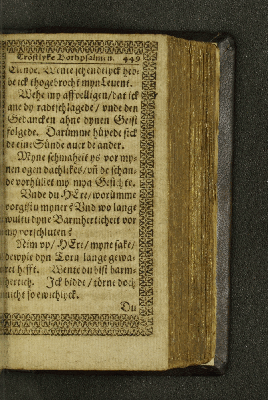 Tröstlyke Bothpsalmen. 449
Sünde. Wente schentlyck heb-
be ick thogebrocht myn Levent.
Wehe my affvelligen / dat ick
ane dy radtschlagede / unde den
Gedancken ahne dynen Geist
folgede. Darümme hüpede sick
de eine Sünde aver de ander.
Myne schmaheit ys vor my-
nen ogen dachlikes / uñ de schan-
de vorhüllet my myn Gesichte.
Unde du HEre / worümme
vorgistu myner? Und wo lange
wultu dyne Barmherticheit vor
my vorschluten?
Nim up / HEre / myne sake /
dewyle dyn Torn lange gewa-
ret hefft. Wente du bist barm-
hertich. Ick bidde / törne doch
nicht so ewichlyck.
Du